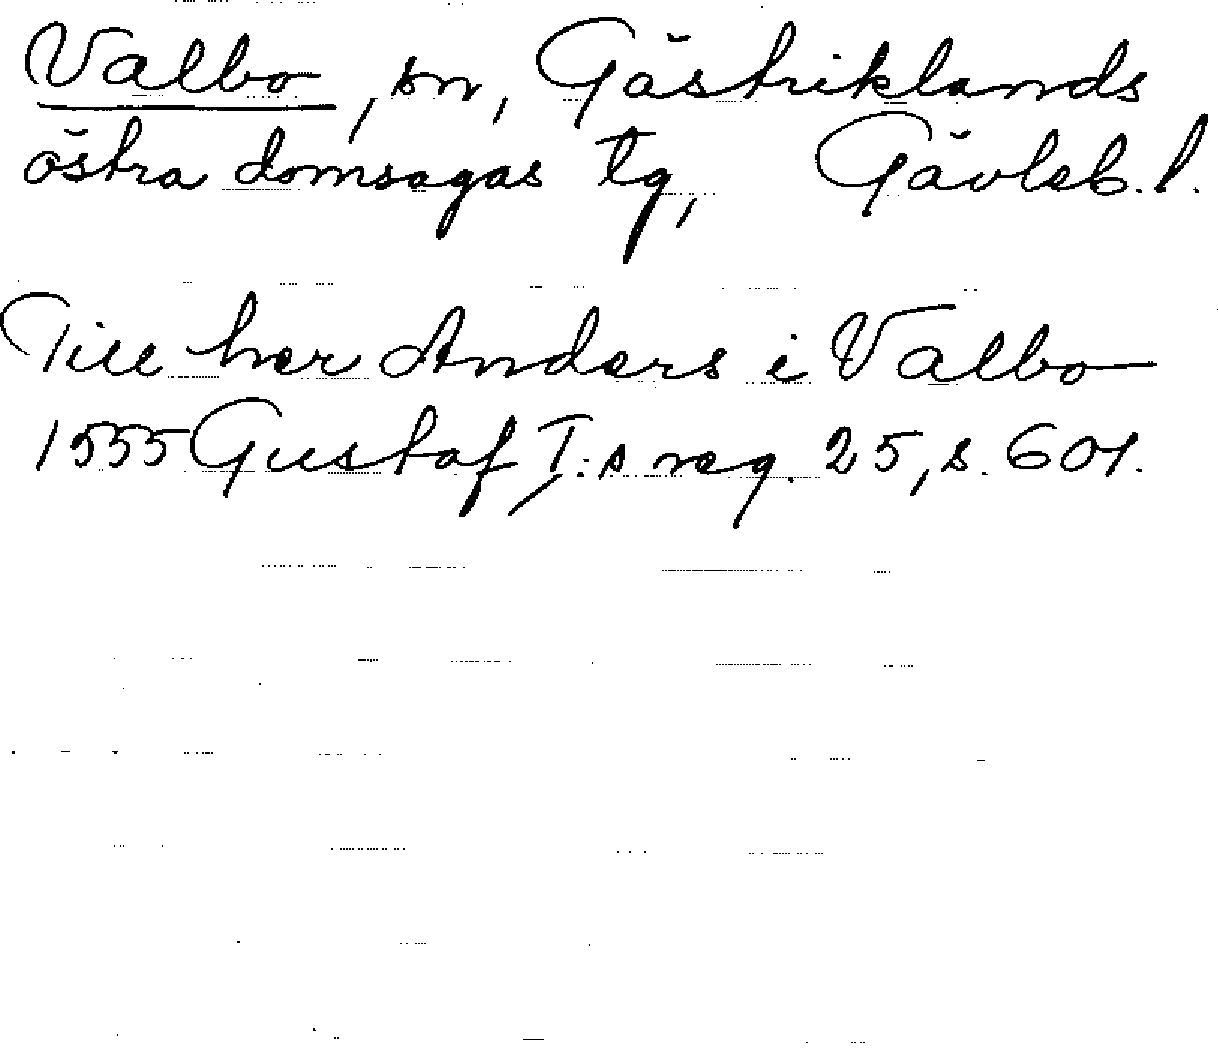 Valbo, sn, Gästriklands
östra domsagas tg, Gävleb. l.
Till her Anders i Valbo
1555 Gustaf I:s reg. 25, s. 601.